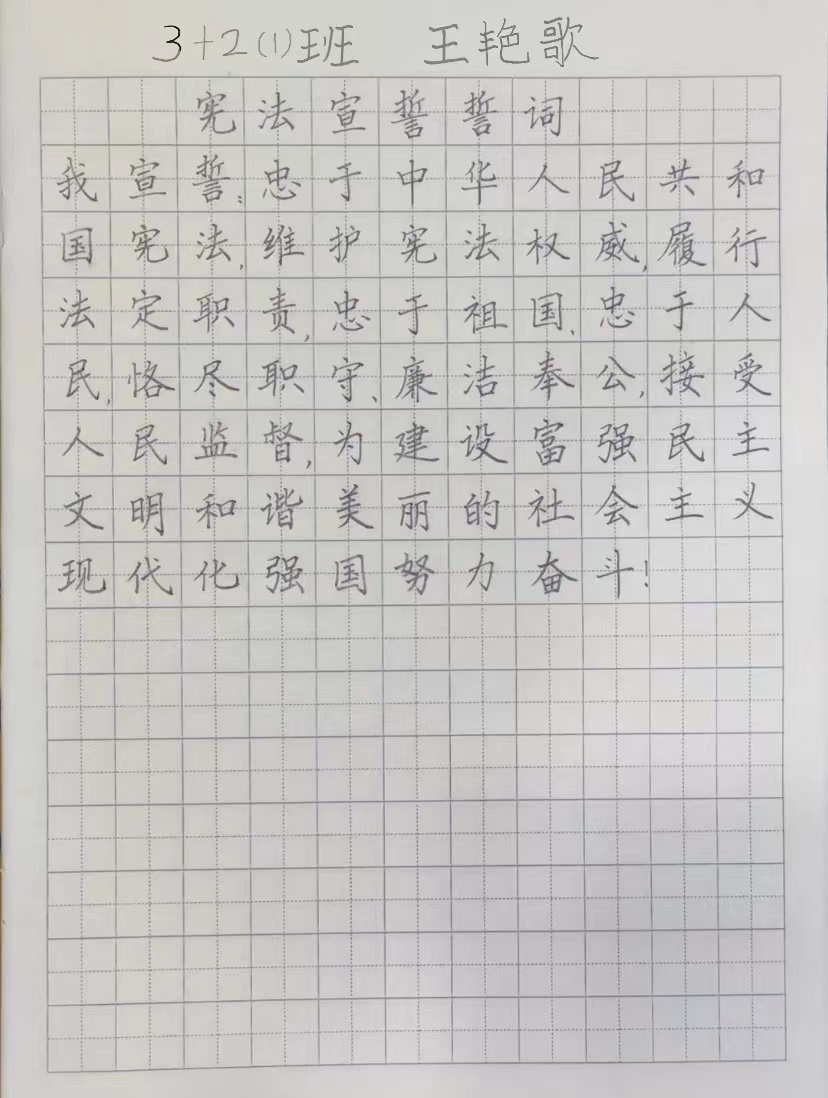 3+2(1)班 王艳歌
宪法宣誓誓词
我宣誓:忠于中华人民共和
国宪法,维护宪法权威,履行
法定职责,忠于祖国、忠于人
民,恪尽职守、廉洁奉公,接受
人民监督,为建设富强民主
文明和谐美丽的社会主义
现代化强国努力奋斗!